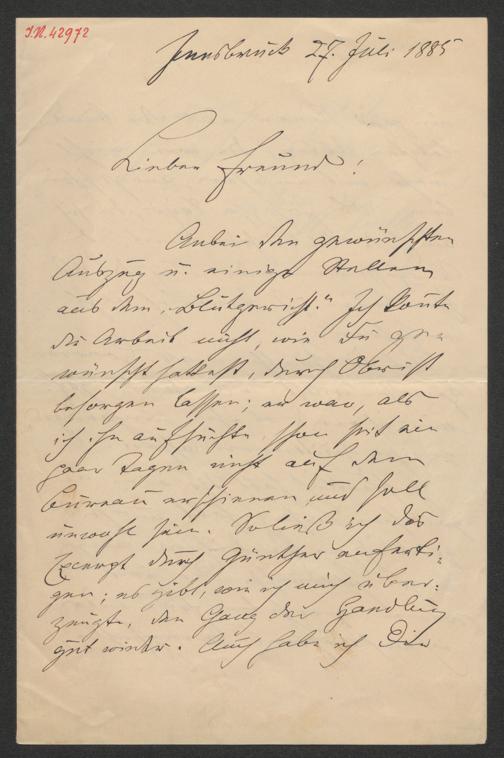 I.N. 42972
Innsbruck 27. Juli 1885
Lieber Freund!
Anbei den gewünschten
Auszug u. einige Stellen
aus dem „Blutgericht." Ich konte
die Arbeit nicht, wie Du ge-
wünscht hattest, durch Obrist
besorgen lassen; er war, als
ich ihn aufsuchte schon seit ein
paar Tagen nicht auf dem
Bureau erschienen und soll
unwohl sein. So ließ ich das
Excerpt durch Günther anferti-
gen; es gibt, wie ich mich über-
zeugte, den Gang der Handlung
gut wieder. Auch habe ich Dir